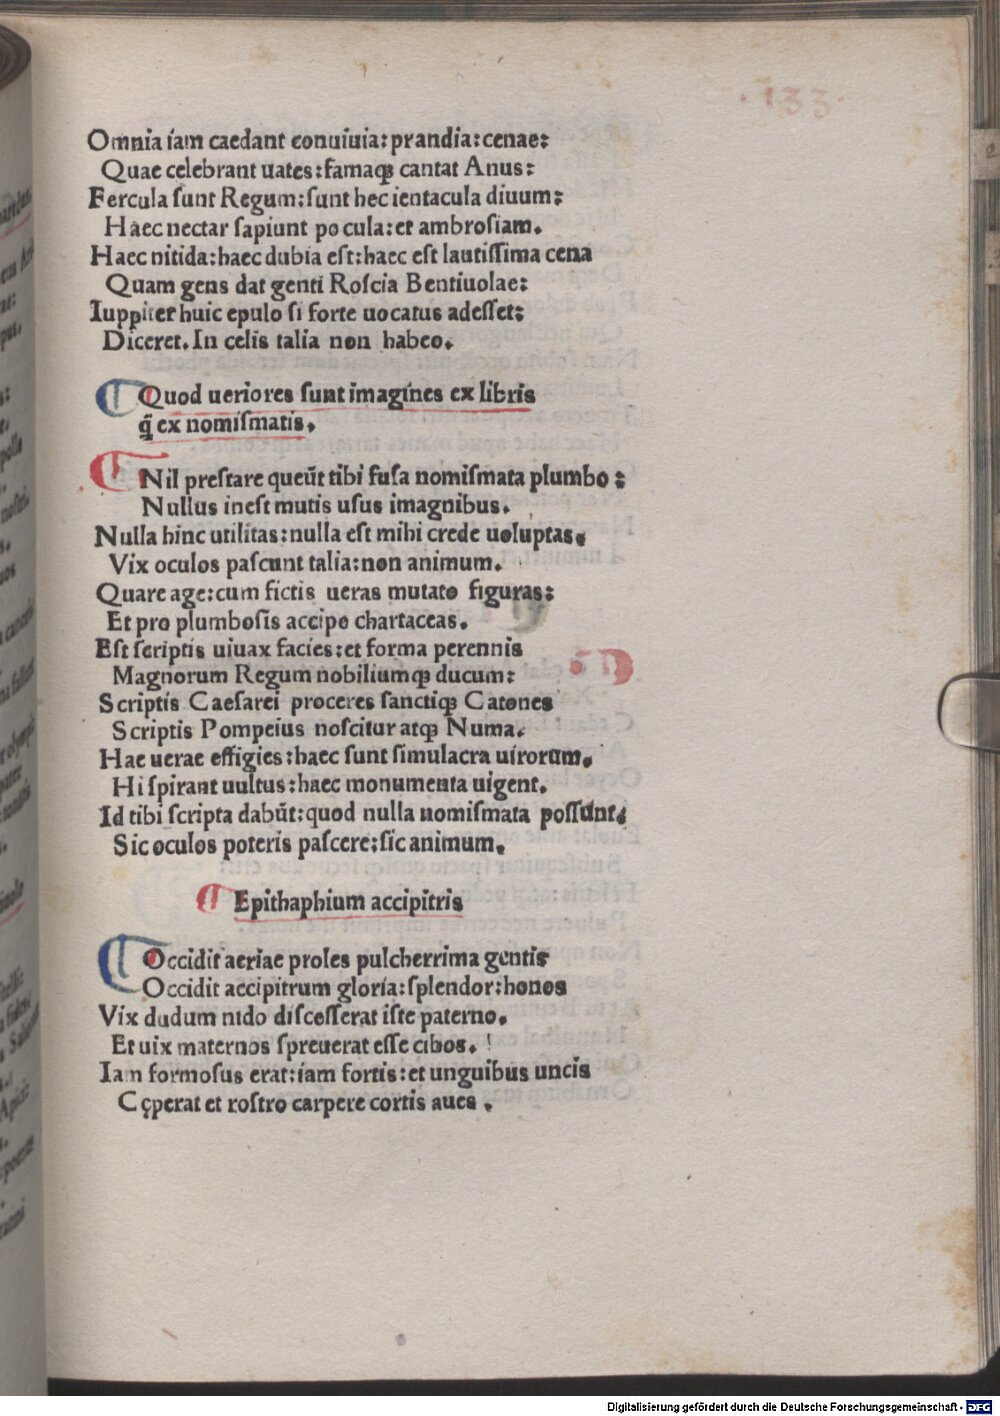 133
Omnia iam caedant conuiuia: prandia: cenae:
Quae celebrant uates: famaqꝫ cantat Anus:
Fercula sunt Regum: sunt hec ientacula diuum:
Haec nectar sapiunt pocula: et ambrosiam.
Haec nitida: haec dubia est: haec est lautissima cena
Quam gens dat genti Roscia Bentiuolae:
Iuppiter huic epulo si forte uocatus adesset:
Diceret. In celis talia non habeo.
Quod ueriores sunt imagines ex libris
q̃ ex nomismatis.
Nil prestare queũt tibi fusa nomismata plumbo:
Nullus inest mutis usus imagnibus.
Nulla hinc utilitas: nulla est mihi crede uoluptas.
Vix oculos pascunt talia: non animum.
Quare age: cum fictis ueras mutato figuras:
Et pro plumbosis accipe chartaceas.
Est scriptis uiuax facies: et forma perennis
Magnorum Regum nobiliumqꝫ ducum:
Scriptis Caesarei proceres sanctiqꝫ Catones
Scriptis Pompeius noscitur atqꝫ Numa.
Hae uerae effigies: haec sunt simulacra uirorum.
Hi spirant uultus: haec monumenta uigent.
Id tibi scripta dabũt: quod nulla nomismata possunt.
Sic oculos poteris pascere: sic animum.
Epithaphium accipitris
Occidit aeriae proles pulcherrima gentis
Occidit accipitrum gloria: splendor: honos
Vix dudum nido discesserat iste paterno.
Et uix maternos spreuerat esse cibos.
Iam formosus erat: iam fortis: et unguibus uncis
Cęperat et rostro carpere cortis aues.
Digitalisierung gefördert durch die Deutsche Forschungsgemeinschaft - DFG